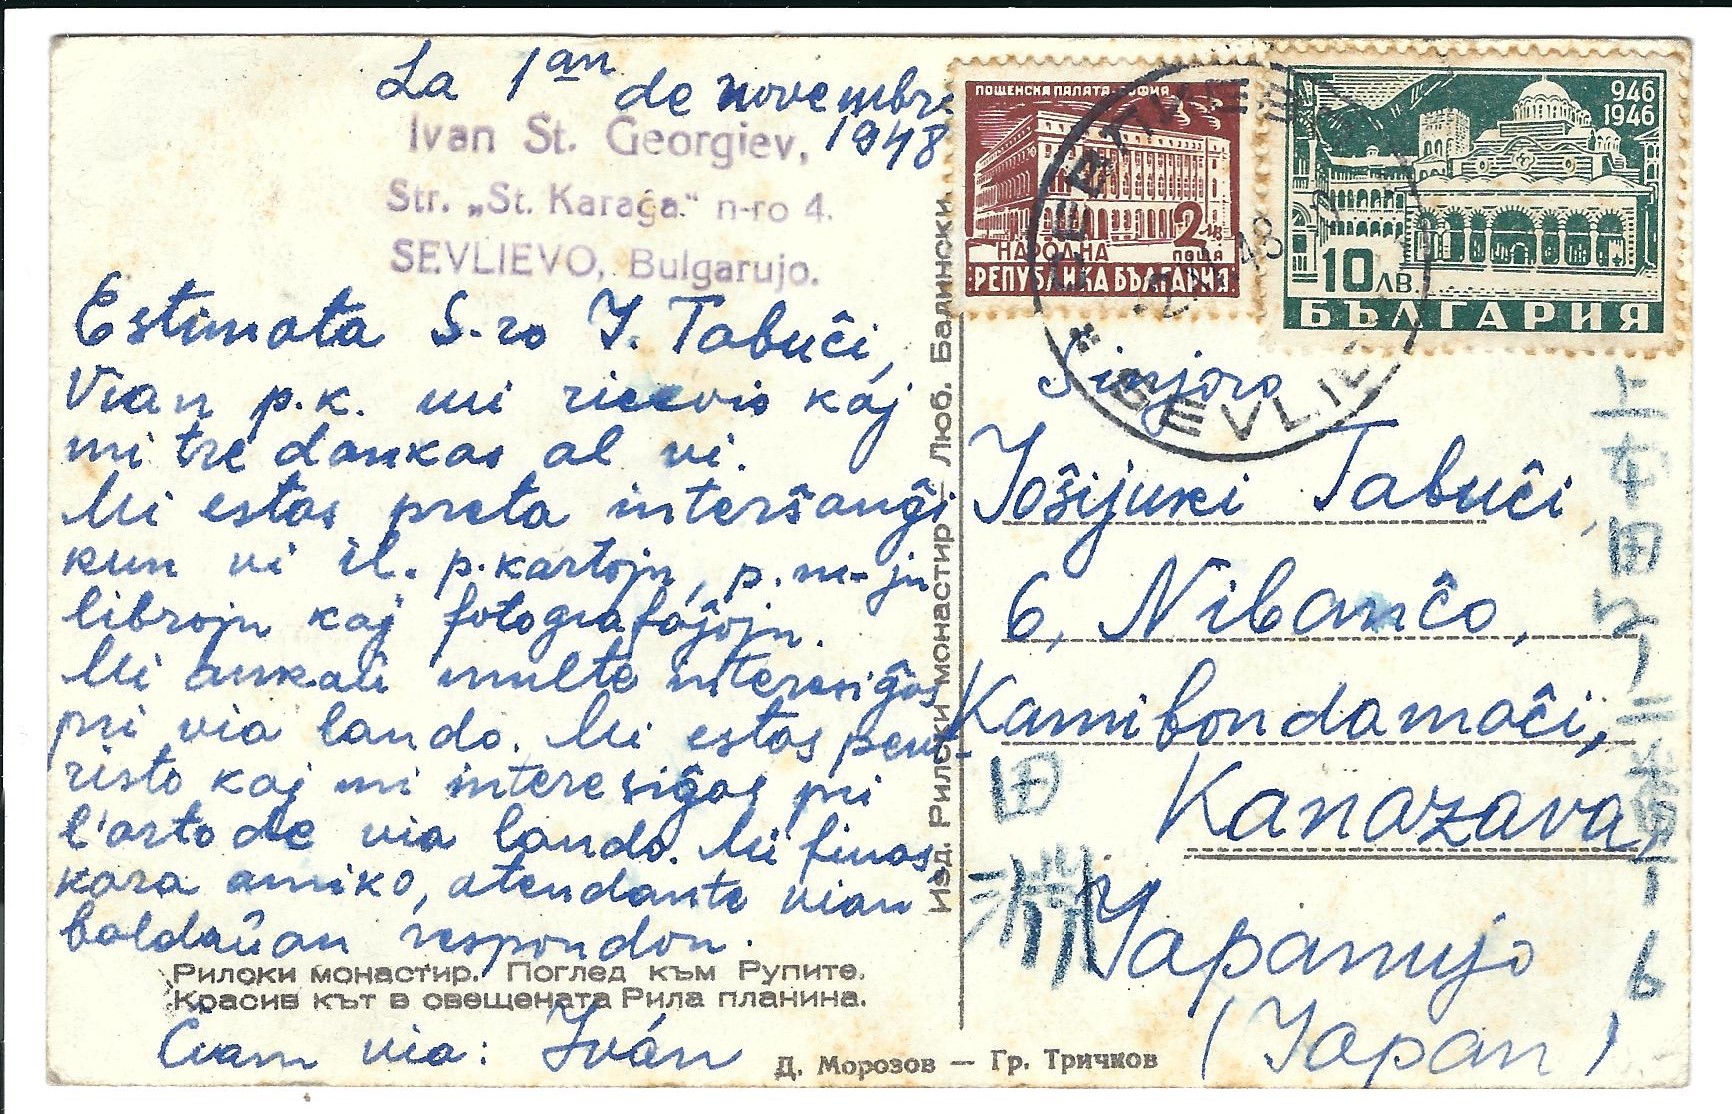 La 1an de novembro
1948
Ivan St. Georgiev,
Str. „St. Karaĝa" n-ro 4.
SEVLIEVO, Bulgarujo.
Estimata S-ro J. Tabuĉi,
Vian p.k. mi ricevis kaj
mi tre dankas al vi.
Mi estas preta interŝanĝi
kun vi il. p.kartojn, p.m-jn
librojn kaj fotografaĵojn.
Mi ankaŭ multe interesiĝas
pri via lando. Mi estas pent-
risto kaj mi interesiĝas pri
l'arto de via lando. Mi finas,
kara amiko, atendante vian
baldaŭan respondon.
Рилски монастир. Поглед към Рупите.
Красив кът в овещената Рила планина.
Ĉiam via: Iván
Д. Морозов — Гр. Тричков
Изд. Рилски монастир — Люб. Балински
ПОЩЕНСКА ПАЛАТА-СОФИЯ
2 ЛВ
НАРОДНА ПОЩА
РЕПУБЛИКА БЪЛГАРИЯ
946
1946
10 ЛВ.
БЪЛГАРИЯ
48
SEVLIE
Sinjoro
Joŝijuki Tabuĉi,
6, Nibanĉo,
Kamihondamaĉi,
Kanazava,
Japanujo
(Japan)
田
淵
上
本
田
町
二
番
丁
6